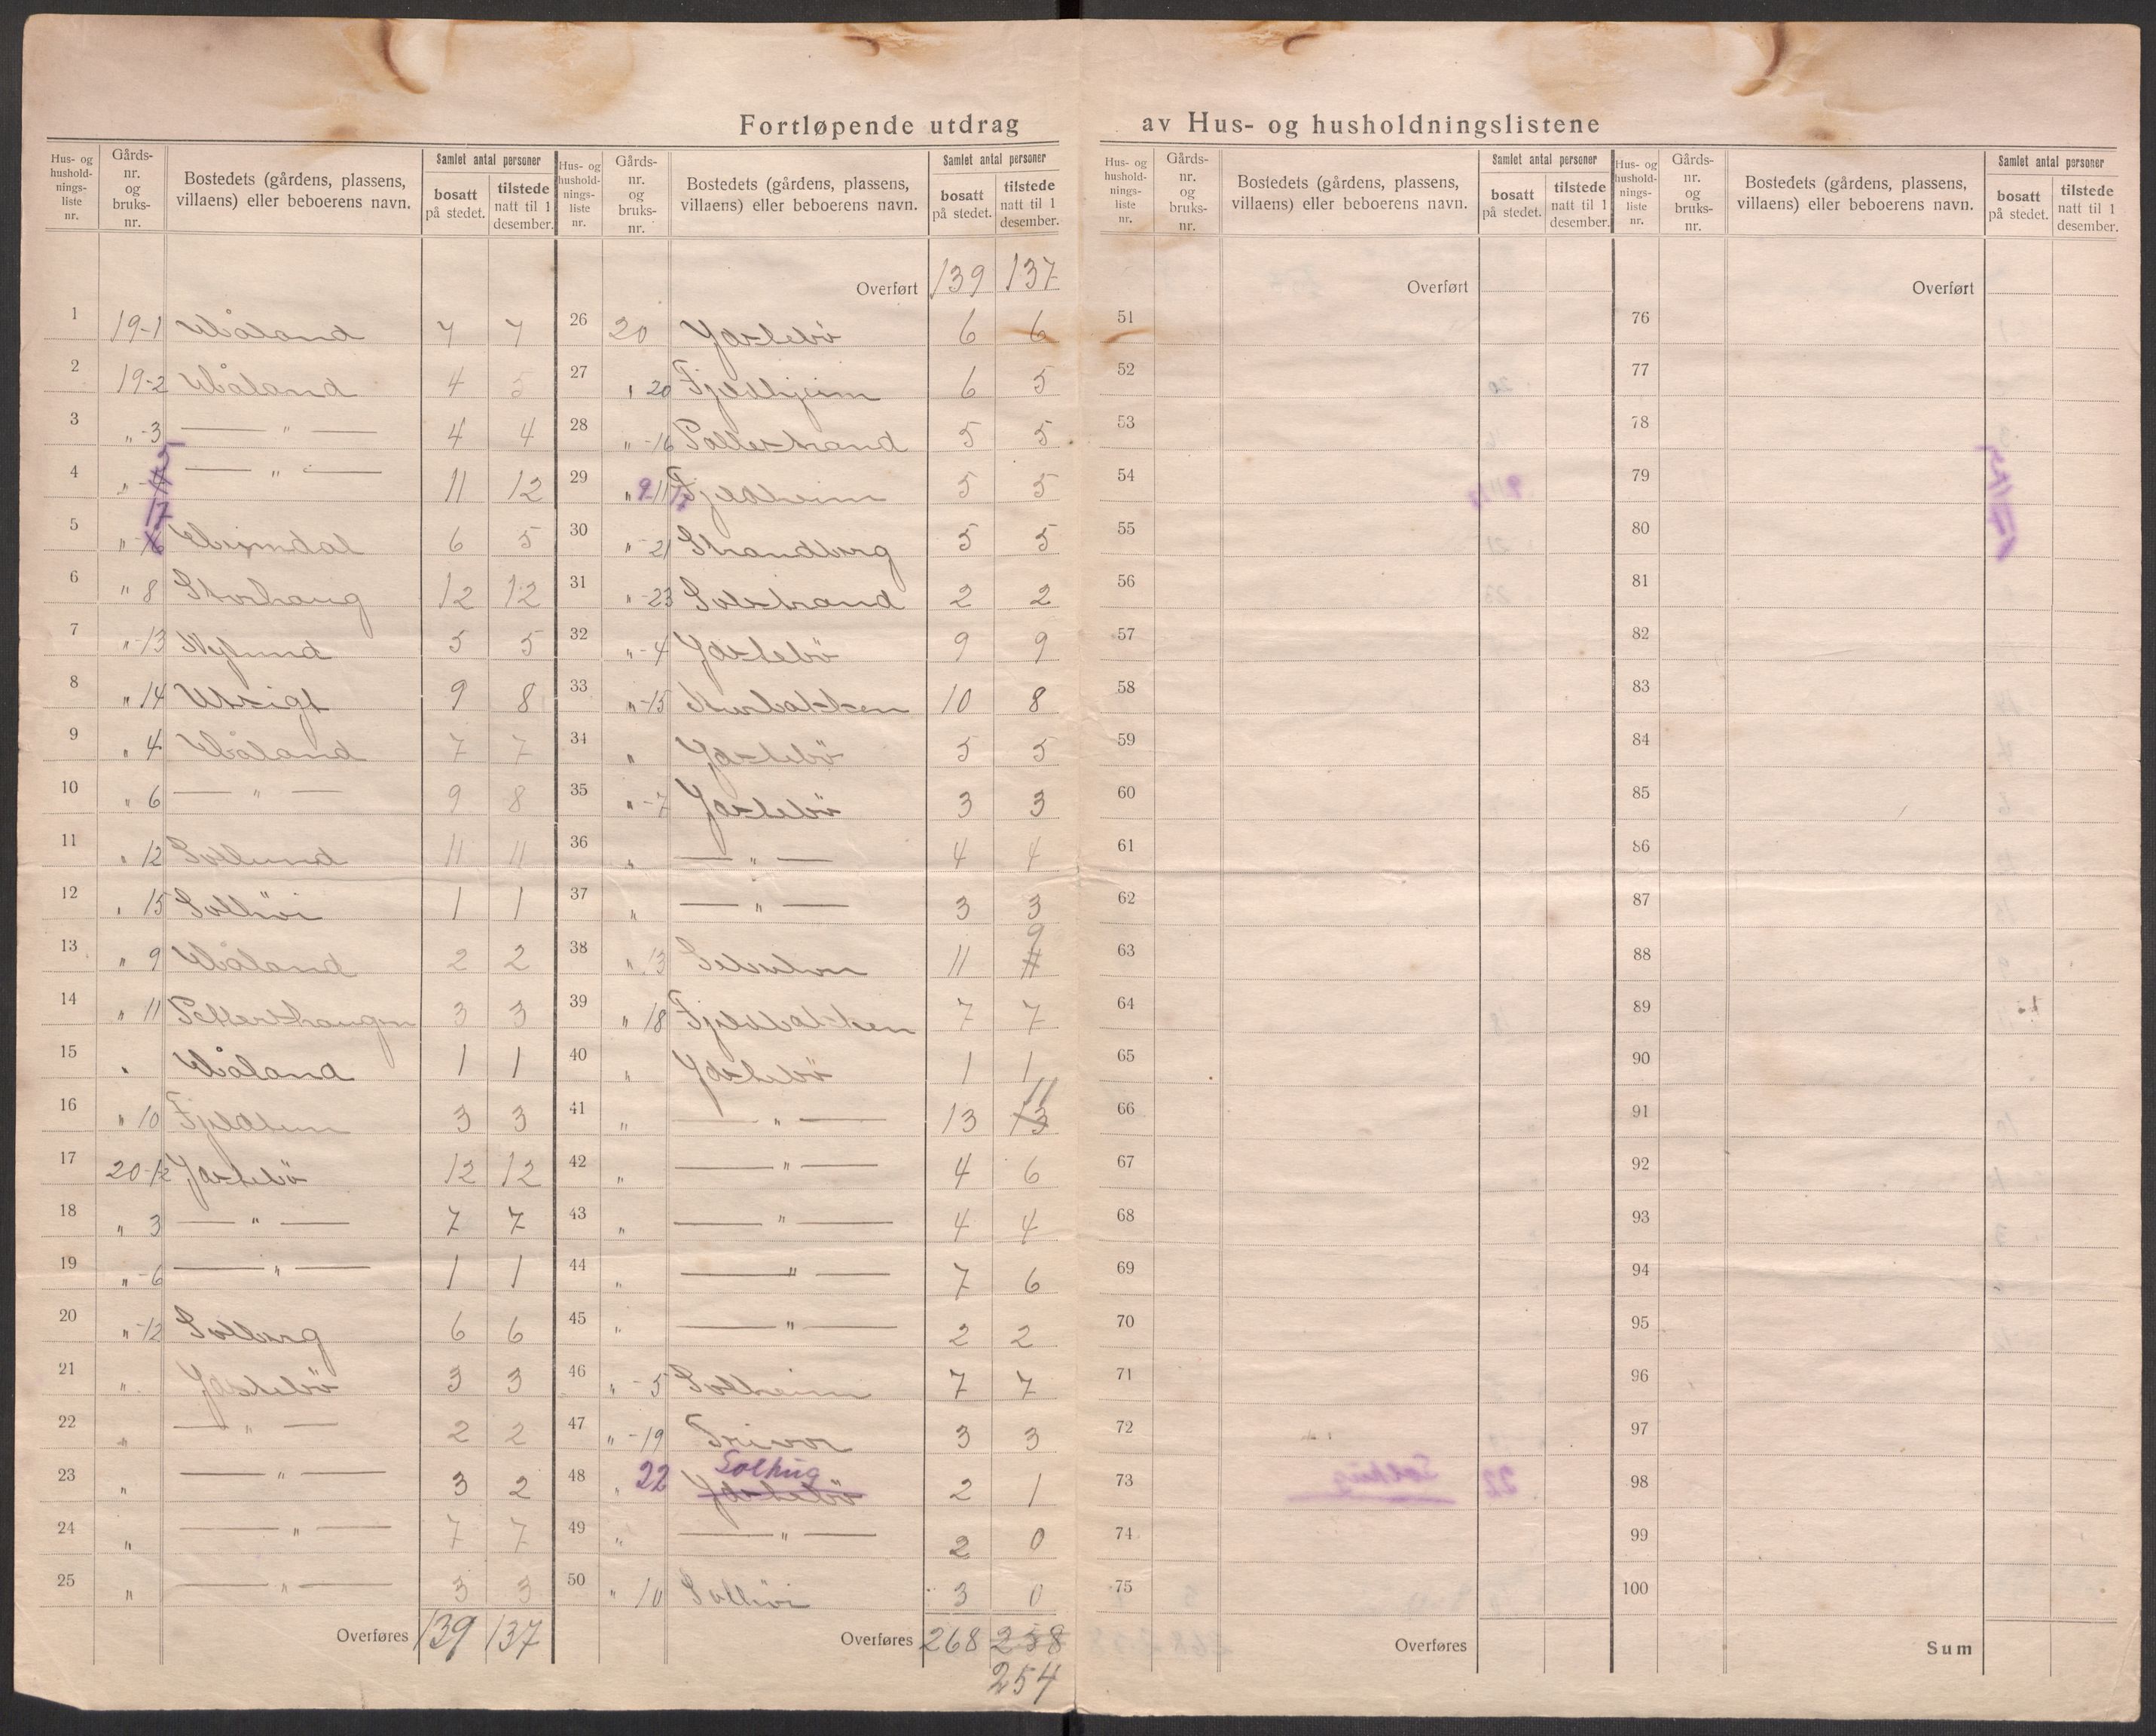 Fortløpende utdrag av Hus- og husholdningslistene
Hus- og hushold-nings-liste nr. | Gårds-nr. og bruks-nr. | Bostedets (gårdens, plassens, villaens) eller beboerens navn. | Samlet antal personer | bosatt på stedet. | tilstede natt til 1 desember.
1 19-1 Våland 7 7
2 19-2 Våland 4 5
3 „-3 — „ — 4 4
4 „ 5 — „ — 11 12
5 „ 17 6 5
6 „ 8 Storhaug 12 12
7 „-13 Nylund 5 5
8 „ 14 Utsigt 9 8
9 „ 4 Våland 7 7
10 „ 6 — „ — 9 8
11 „ 12 Sollund 11 11
12 „ 15 Solhöi 1 1
13 „ 9 Våland 2 2
14 „ 11 Pettershaugen 3 3
15 „ Våland 1 1
16 „ 10 3 3
17 20-1/2 Jastebö 12 12
18 „ 3 — „ — 7 7
19 „-6 — „ — 1 1
20 „-12 Solberg 6 6
21 „ Jastebö 3 3
22 „ — „ — 2 2
23 „ — „ — 3 2
24 „ — „ — 7 7
25 „ — „ — 3 3
Overføres 139 137
Hus- og hushold-nings-liste nr. | Gårds-nr. og bruks-nr. | Bostedets (gårdens, plassens, villaens) eller beboerens navn. | Samlet antal personer | bosatt på stedet. | tilstede natt til 1 desember.
Overført 139 137
26 20 Jastebö 6 6
27 „ 20 Fjeldhjeim 6 5
28 „-16 Pollestrand 5 5
29 „ 9-11 Fjeldheim 5 5
30 „-21 Strandberg 5 5
31 „-23 Solstrand 2 2
32 „-4 Jastebö 9 9
33 „-15 10 8
34 „ Jastebö 5 5
35 „-7 Jastebö 3 3
36 „ — „ — 4 4
37 „ — „ — 3 3
38 „ 13 11 9
39 „ 18 Fjeldbakken 7 7
40 „ Jastebö 1 1
41 „ — „ — 13 13 11
42 „ — „ — 4 6
43 „ — „ — 4 4
44 „ — „ — 7 6
45 „ — „ — 2 2
46 „-5 Solheim 7 7
47 „-19 3 3
48 „ 22 Jastebö 2 1
49 „ — „ — 2 0
50 „ 10 Solhöi 3 0
Overføres 268 258
254
Hus- og hushold-nings-liste nr. | Gårds-nr. og bruks-nr. | Bostedets (gårdens, plassens, villaens) eller beboerens navn. | Samlet antal personer | bosatt på stedet. | tilstede natt til 1 desember.
Overført
51
52
53
54
55
56
57
58
59
60
61
62
63
64
65
66
67
68
69
70
71
72
73
74
75
Overføres
Hus- og hushold-nings-liste nr. | Gårds-nr. og bruks-nr. | Bostedets (gårdens, plassens, villaens) eller beboerens navn. | Samlet antal personer | bosatt på stedet. | tilstede natt til 1 desember.
Overført
76
77
78
79
80
81
82
83
84
85
86
87
88
89
90
91
92
93
94
95
96
97
98
99
100
Sum